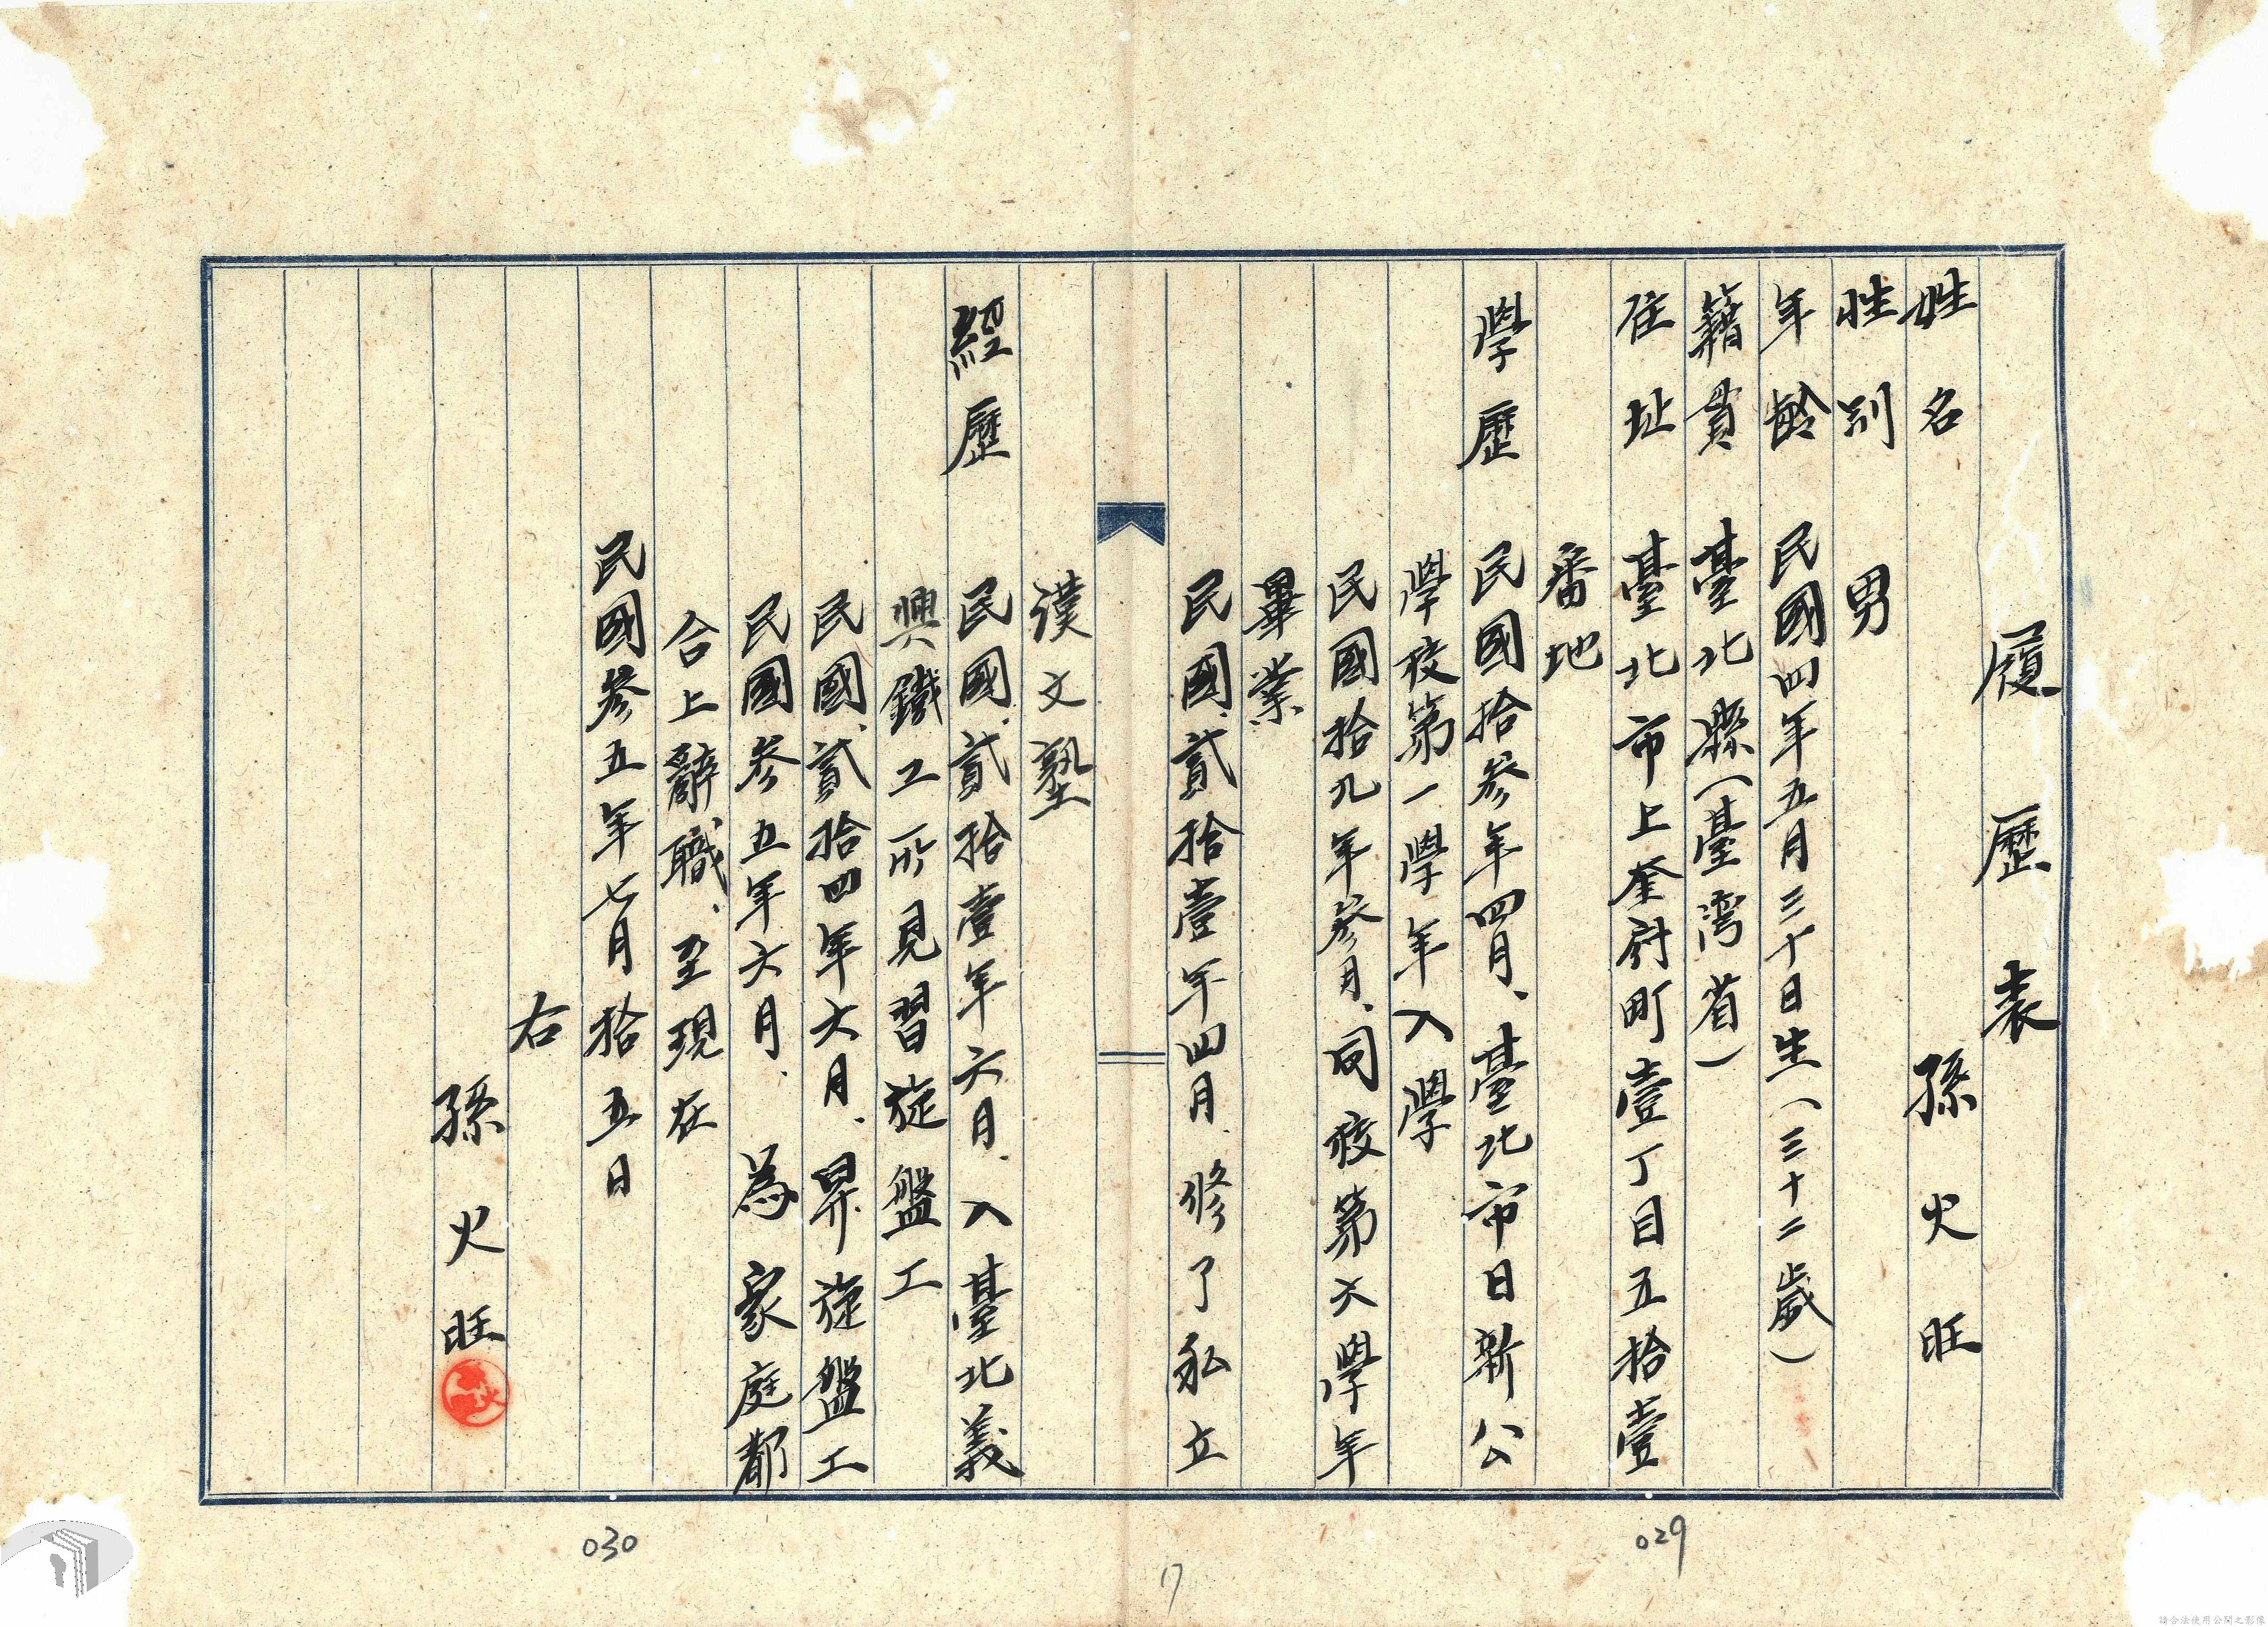 履歷表
姓名 孫火旺
性別 男
年齡 民國四年五月三十日生(三十二歲)
籍貫 臺北縣(臺灣省)
住址 臺北市上奎府町壹丁目五拾壹
番地
學歷 民國拾參年四月、臺北市日新公
學校第一學年入學
民國拾九年參月、同校第六學年
畢業
民國、貳拾壹年四月、修了私立
漢文塾
經歷 民國、貳拾壹年六月、入臺北義
興鐵工所見習旋盤工
民國、貳拾四年六月、昇旋盤工
民國參五年六月、為家庭都
合上辭職、至現在
民國參五年七月拾五日
右
孫火旺
030
029
17
請合法使用公開之影像